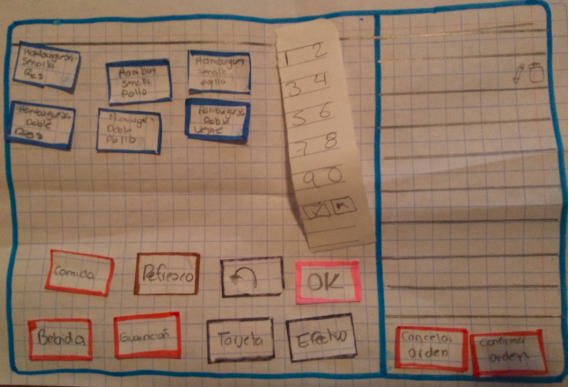 Hamburguesa
Smalls
Res
Hambur
Smalls
Pollo
Hamburguesa
Smalls
pollo
Hamburguesa
Doble
Res
Hamburguesa
Doble
Pollo
Hamburguesa
Doble
1 2
3 4
5 6
7 8
9 0
Comida
Refresco
OK
Bebida
Guarnición
Tarjeta
Efectivo
Cancelar
orden
Confirmar
orden